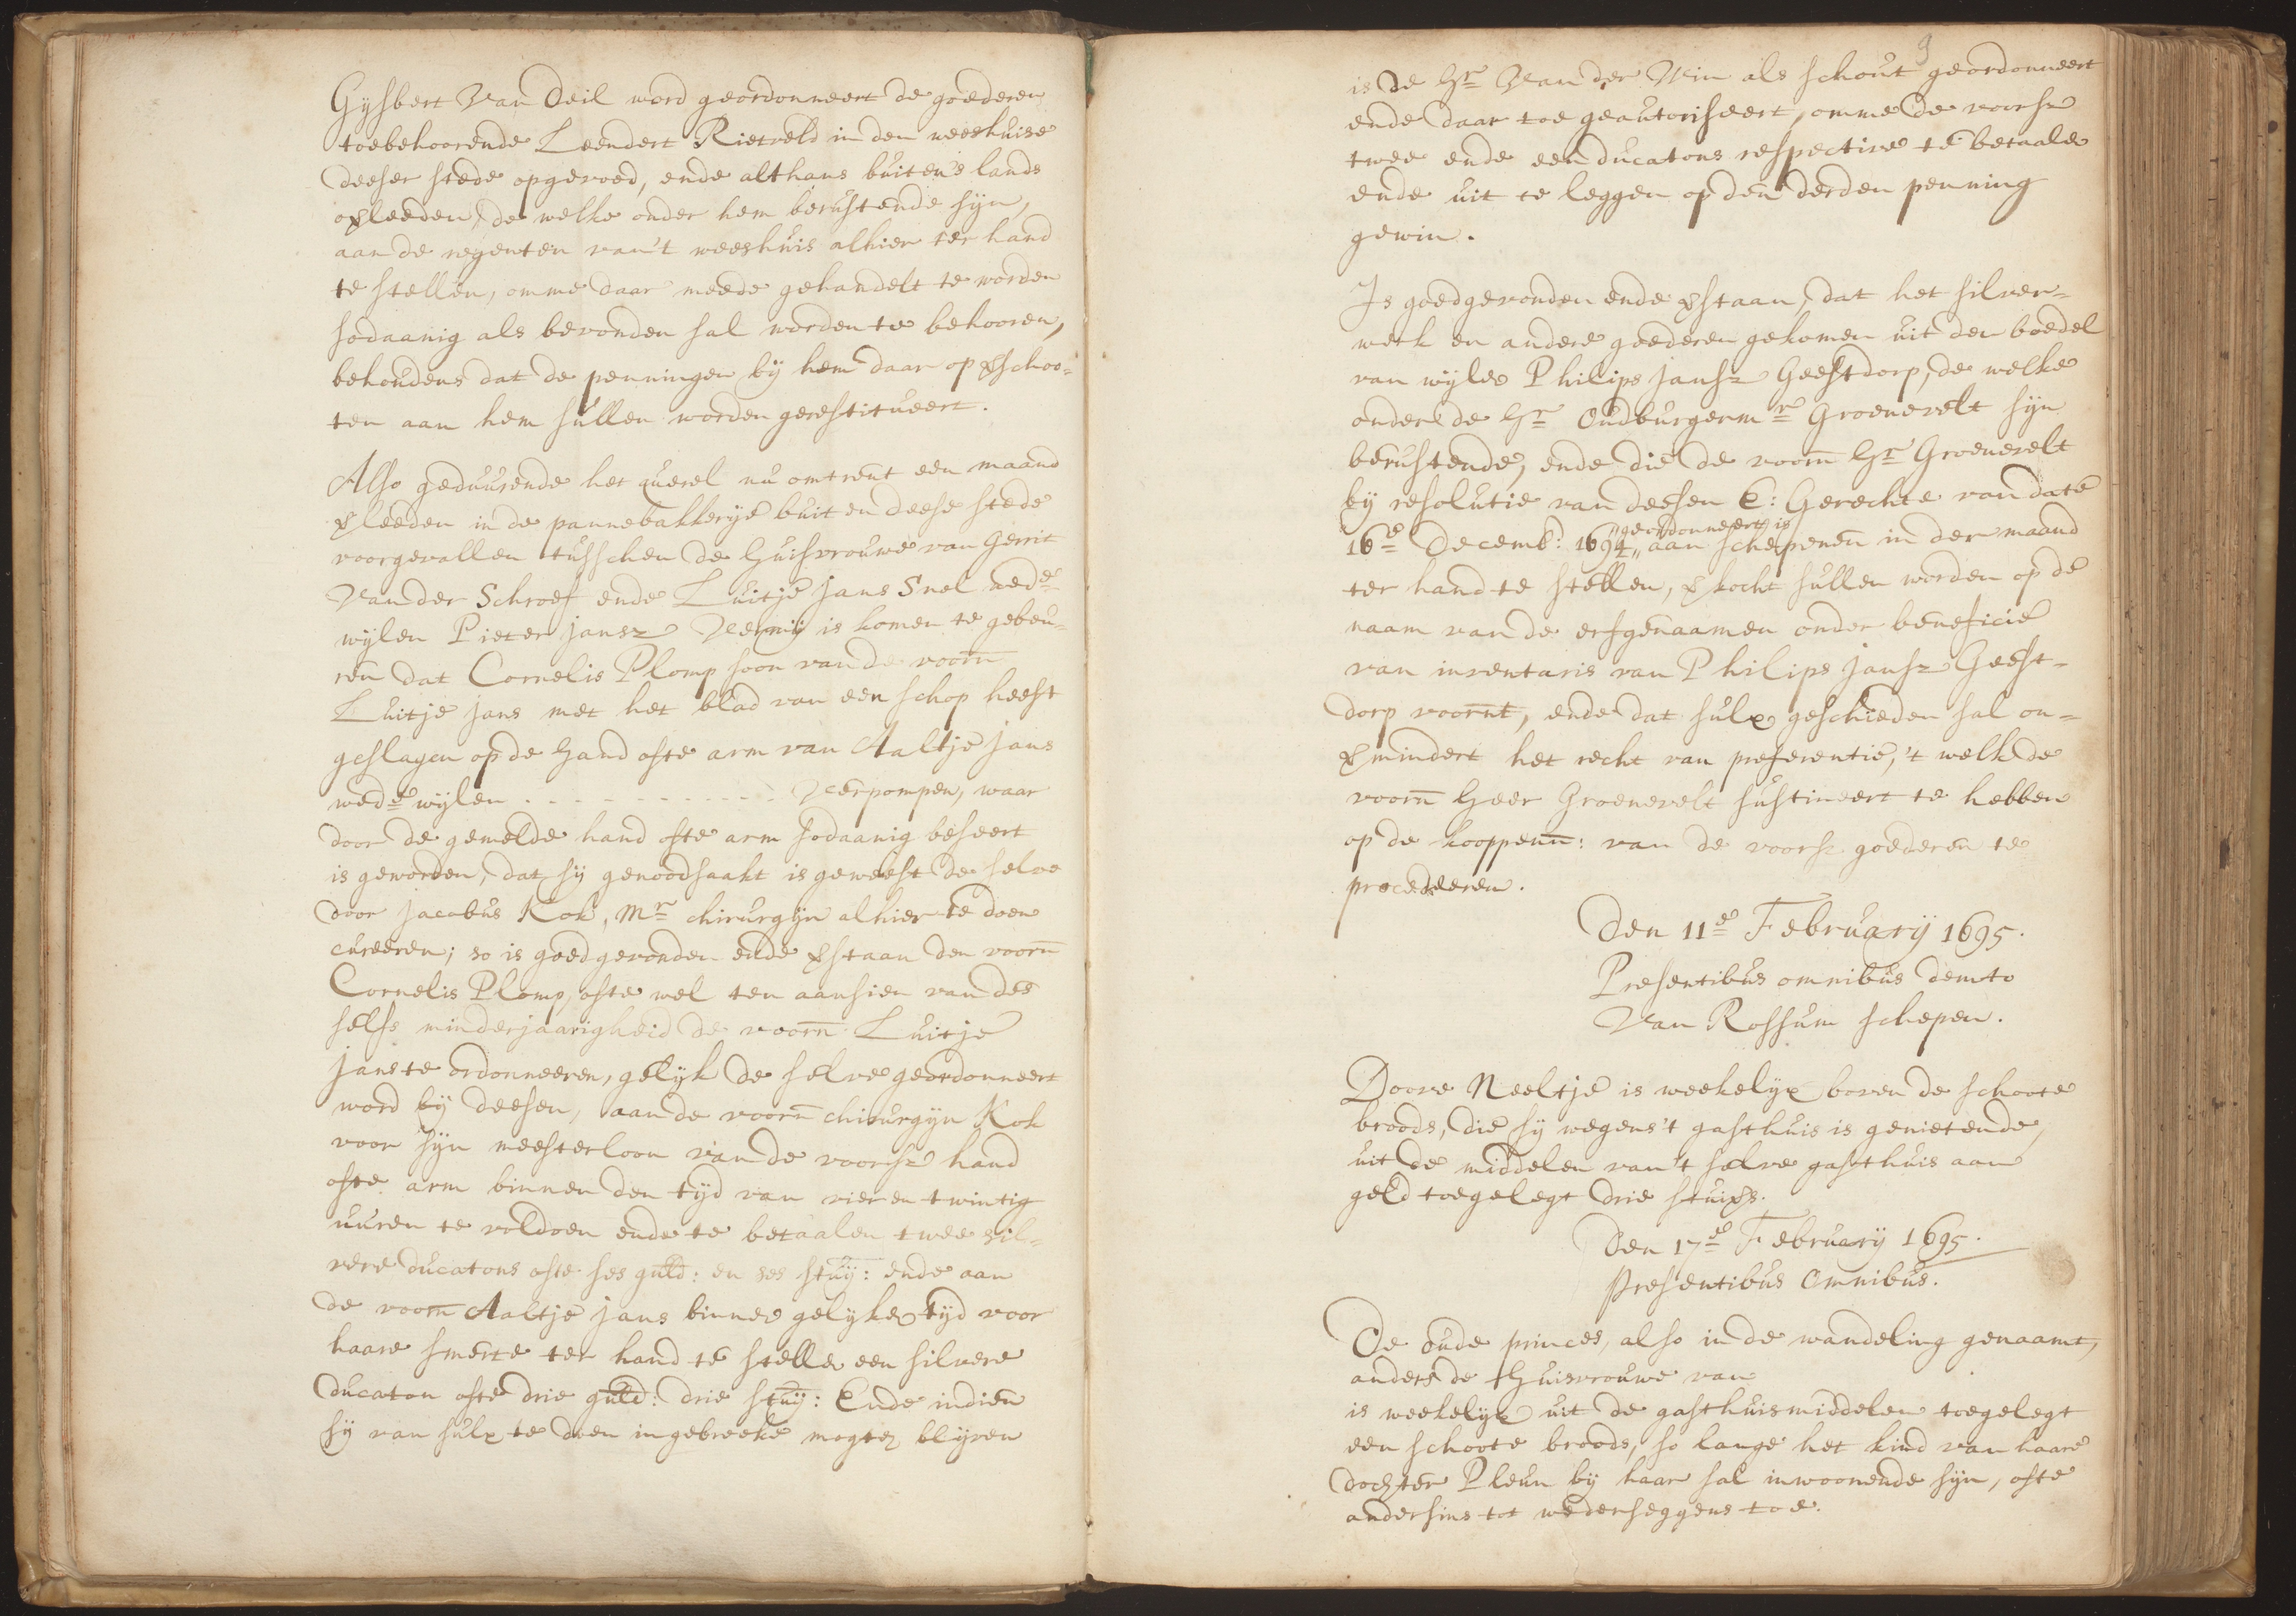 Gysbert Van Deil word geordonneert de goederen
toebehoorende Leendert Rietveld in den weeshuise
deeser stede opgevoed, ende althans buiten 's lands
overleeden, de welke onder hem berustende sijn,
aan de regenten van 't weeshuis alhier ter hand
te stellen, omme daar meede gehandelt te worden
sodaanig als bevonden sal worden te behooren,
behoudens dat de penningen bij hem daar op verschoo-
ten aan hem sullen worden gerestitueert.
Also geduurende het querel nu omtrent een maand
verleeden in de pannebakkerije buiten deese stede
voorgevallen tusschen de Huisvrouwe van Gerrit
Van der Schroef ende Luitje Jans Snel wede
wijlen Pieter Jansz Vermij is komen te gebeu-
ren dat Cornelis Plomp soon van de voorn
Luitje Jans met het blad van een schop heeft
geslagen op de Hand ofte arm van Aaltje Jans
wede wijlen . - - - - - - - - - Verpompen, waar
door de gemelde hand ofte arm sodaanig beseert
is geworden, dat sij genoodsaakt is geweest de selve
door Jacobus Kok, Mr chirurgijn alhier te doen
cureeren; so is goedgevonden ende verstaan den voorn
Cornelis Plomp, ofte wel ten aansien van des
selfs minderjaarigheid de voorn Luitje
Jans te ordonneeren, gelijk de selve geordonneert
word bij deesen, aan de voorn chirurgijn Kok
voor sijn meesterloon van de voorsz hand
ofte arm binnen den tijd van vier en twintig
uuren te voldoen ende te betaalen twee sil-
vere ducatons ofte ses guld: en ses stuij: ende aan
de voorn Aaltje Jans binnen gelijken tijd voor
haare smerte ter hand te stellen een silvere
ducaton ofte drie guld: drie stuij: Ende indien
sij van sulx te doen ingebreeke mogten blijven
9
is de Hr Van der Win als schout geordonneert
ende daar toe geautoriseert, omme de voorsz
twee ende een ducatons respective te betaalen
ende uit te leggen op den derden penning
gewin.
Is goedgevonden ende verstaan, dat het silver-
werk en andere goederen gekomen uit den boedel
van wijlen Philips Jansz Geestdorp, de welke
onder de Hr Oudburgermr Groenevelt sijn
berustende, ende die de voorn Hr Groenevelt
bij resolutie van deesen E: Gerechte van date
geordonneert is
16e Decemb: 1694 " aan schepenen in der maand
ter hand te stellen, verkocht sullen worden op de
naam van de erfgenaamen onder beneficie
van inventaris van Philips Jansz Geest-
dorp voornt, ende dat sulx geschieden sal on-
vermindert het recht van preferentie, 't welk de
voorn Heer Groenevelt sustineert te hebben
op de kooppenn: van de voorsz goederen te
procedeeren.
Den 11e February 1695.
Presentibus omnibus demto
Van Rossum schepen.
Doove Neeltje is weekelijx boven de schoote
broods, die sij wegens 't gasthuis is genietende,
uit de middelen van 't selve gasthuis aan
geld toegelegt drie stuivers.
Den 17e February 1695.
Presentibus Omnibus.
De oude princes, also in de wandeling genaamt,
anders de Huisvrouwe van
is weekelijx uit de gasthuismiddelen toegelegt
een schoote broods, so lange het kind van haare
dochter Pleun bij haar sal inwoonende sijn, ofte
andersins tot wederseggens toe.